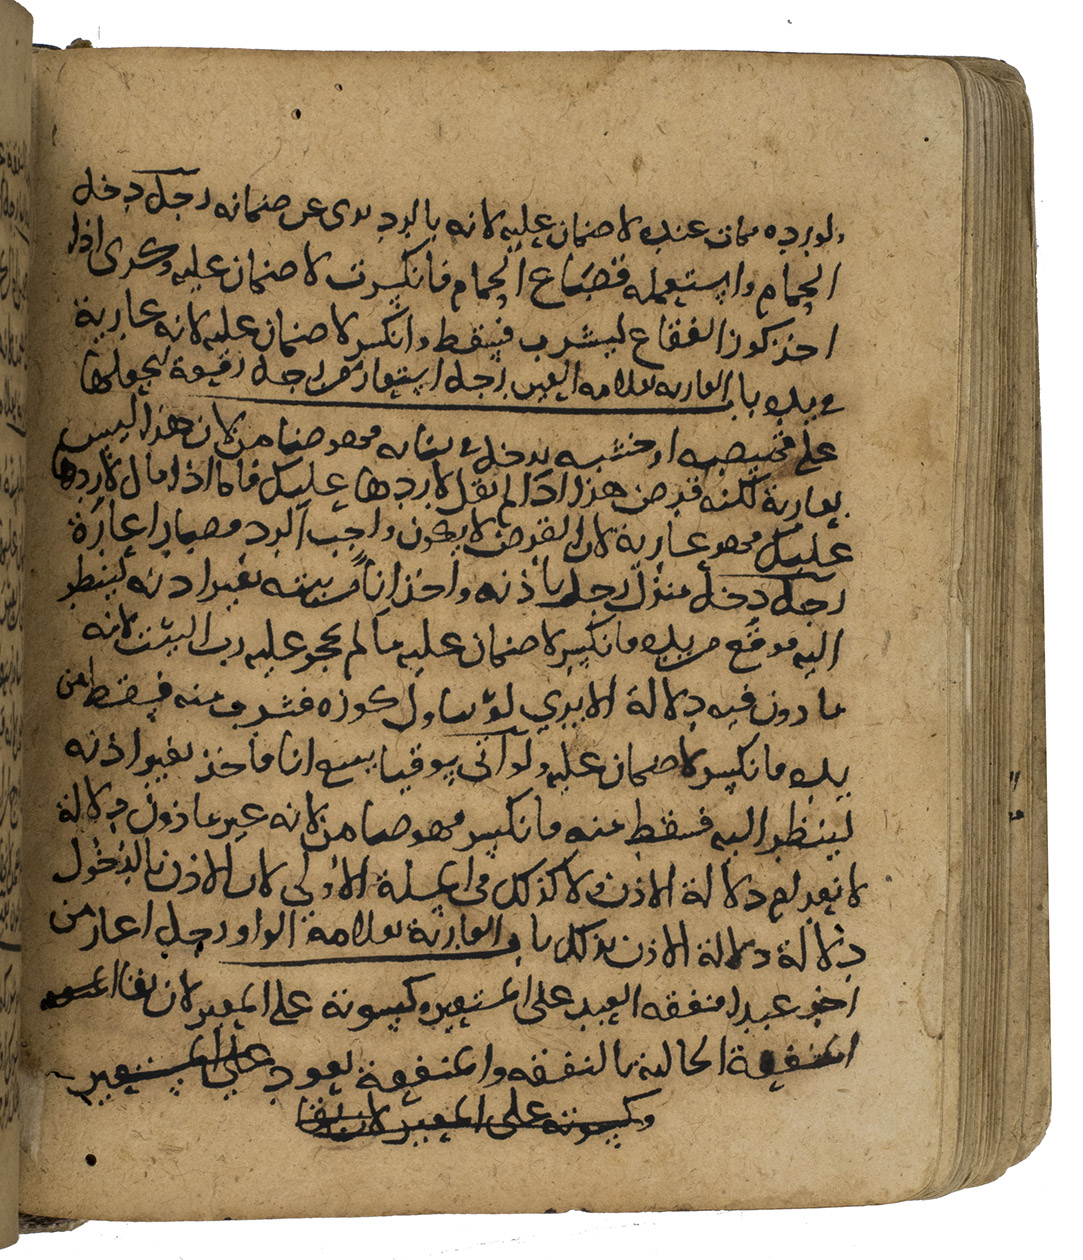 ولو رده مات عنده لا ضمان عليه لانه بالرد برى عن ضمانه رجل دخل
الحمام واستعمله قصاع الحمام فانكسرت لا ضمان عليه وكرى اذا
اخذ كوز الفقاع ليشرب فسقط وانكسر لا ضمان عليه لانه عارية
في يده باب العاريه بعلامه العين رجل استعار من رجل رقعة ليجعلها
على قميصه او خشبه يدخل في بنائه فهو ضامن لان هذا ليس
بعارية لكنه قرض هذا اذا لم يقل لاردها عليك فاما اذا قال لاردها
عليك فهو عارية لان القرض لا يكون واجب الرد فصار اعارة
رجل دخل منزل رجل باذنه واخذ اناً من بيته بغير اذنه لينظر
اليه فوقع من يده فانكسر لا ضمان عليه ما لم يحجر عليه رب البيت لانه
ماذون فيه دلالة الا يرى لو تناول كوزه فشرب منه فسقط من
يده فانكسر لا ضمان عليه ولو اتى سوقيا يبيع انا فاخذ بغير اذنه
لينظر اليه فسقط منه فانكسر فهو ضامن لانه غير ماذون دلالة
لانعدام دلالة الاذن ولا كذلك في المسلة الاولى لان الاذن بالدخول
دلالة دلالة الاذن بذلك باب العارية بعلامة الواو رجل اعار من
اخر عبدا فنفقه العبد على المستعير وكسوته على المعير لان بقا
المنفعة الحالية بالنفقه والمنفعة يعود على المستعير
وكسوته على المعير لان بقا